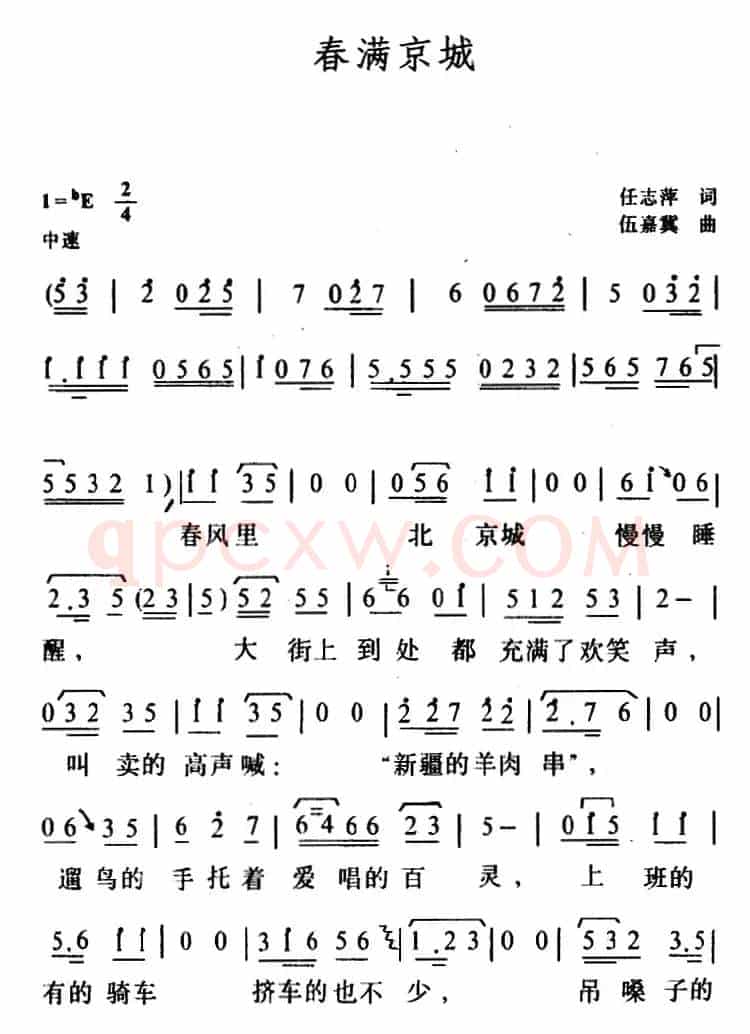 春满京城
1=♭E 2/4
任志萍 词
中速
伍嘉冀 曲
(5 3 | 2 0 2 5 | 7 0 2 7 | 6 0 6 7 2 | 5 0 3 2 |
1. 1 1 1 0 5 6 5 | 1 0 7 6 | 5. 5 5 5 0 2 3 2 | 5 6 5 7 6 5 |
5 5 3 2 1 ) | 1 1 3 5 | 0 0 | 0 5 6 1 1 | 0 0 | 6 1 0 6 |
春风里 北 京城 慢慢 睡
2. 3 5 (2 3 | 5) 5 2 5 5 | 6 6 0 1 | 5 1 2 5 3 | 2 - |
醒, 大 街上 到处 都 充满了欢笑 声,
0 3 2 3 5 | 1 1 3 5 | 0 0 | 2 2 7 2 2 | 2. 7 6 | 0 0 |
叫 卖的 高声喊: “新疆的羊肉 串”,
0 6 3 5 | 6 2 7 | 6 4 6 6 2 3 | 5 - | 0 1 5 1 1 |
遛 鸟的 手托着 爱 唱的 百 灵, 上 班的
5. 6 1 1 | 0 0 | 3 1 6 5 6 | 1. 2 3 | 0 0 | 5 3 2 3. 5 |
有的 骑车 挤车的也不 少, 吊 嗓 子的
qpcxw.COM